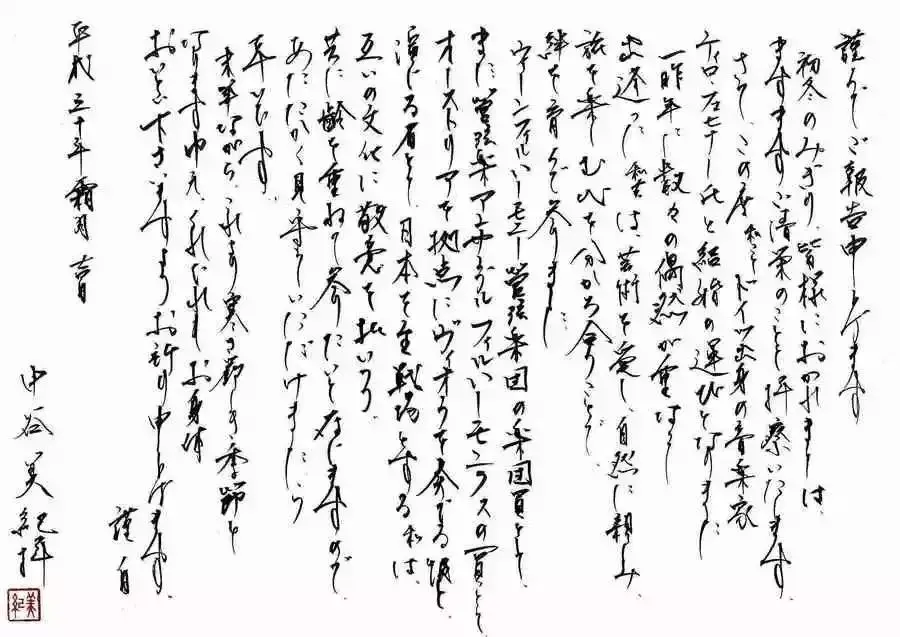 謹んでご報告申し上げます
初冬のみぎり、皆様におかれましては、
ますますご清栄のことと拝察いたします。
さて、この度 私こと ドイツ出身の音楽家
ティロ・フェヒナー氏と結婚の運びとなりました
一昨年に数々の偶然が重なり
出逢った私達は、芸術を愛し、自然に親しみ、
旅を楽しむひとときを分かち合うことで、
絆を育んで参りました。
ウィーンフィルハーモニー管弦楽団の楽団員として、
また、管弦楽アンサンブル フィルハーモニクスの一員として
オーストリアを拠点にヴィオラを奏でる彼と、
演じる者として、日本を主戦場とする私は、
互いの文化に敬意を払いつつ、
共に齢を重ねて参りたいと存じますので、
あたたかく見守っていただけましたら
幸いです。
末筆ながら、これより寒さ厳しき季節と
なりますゆえ、くれぐれもお身体
おいとい下さいますようお祈り申し上げます。
謹白
平成三十年霜月 吉日
中谷美紀 拝
美紀